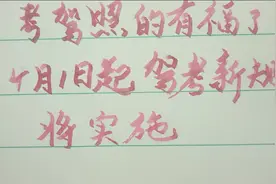 考驾照的有福了
4月1日起 驾考新规
将实施